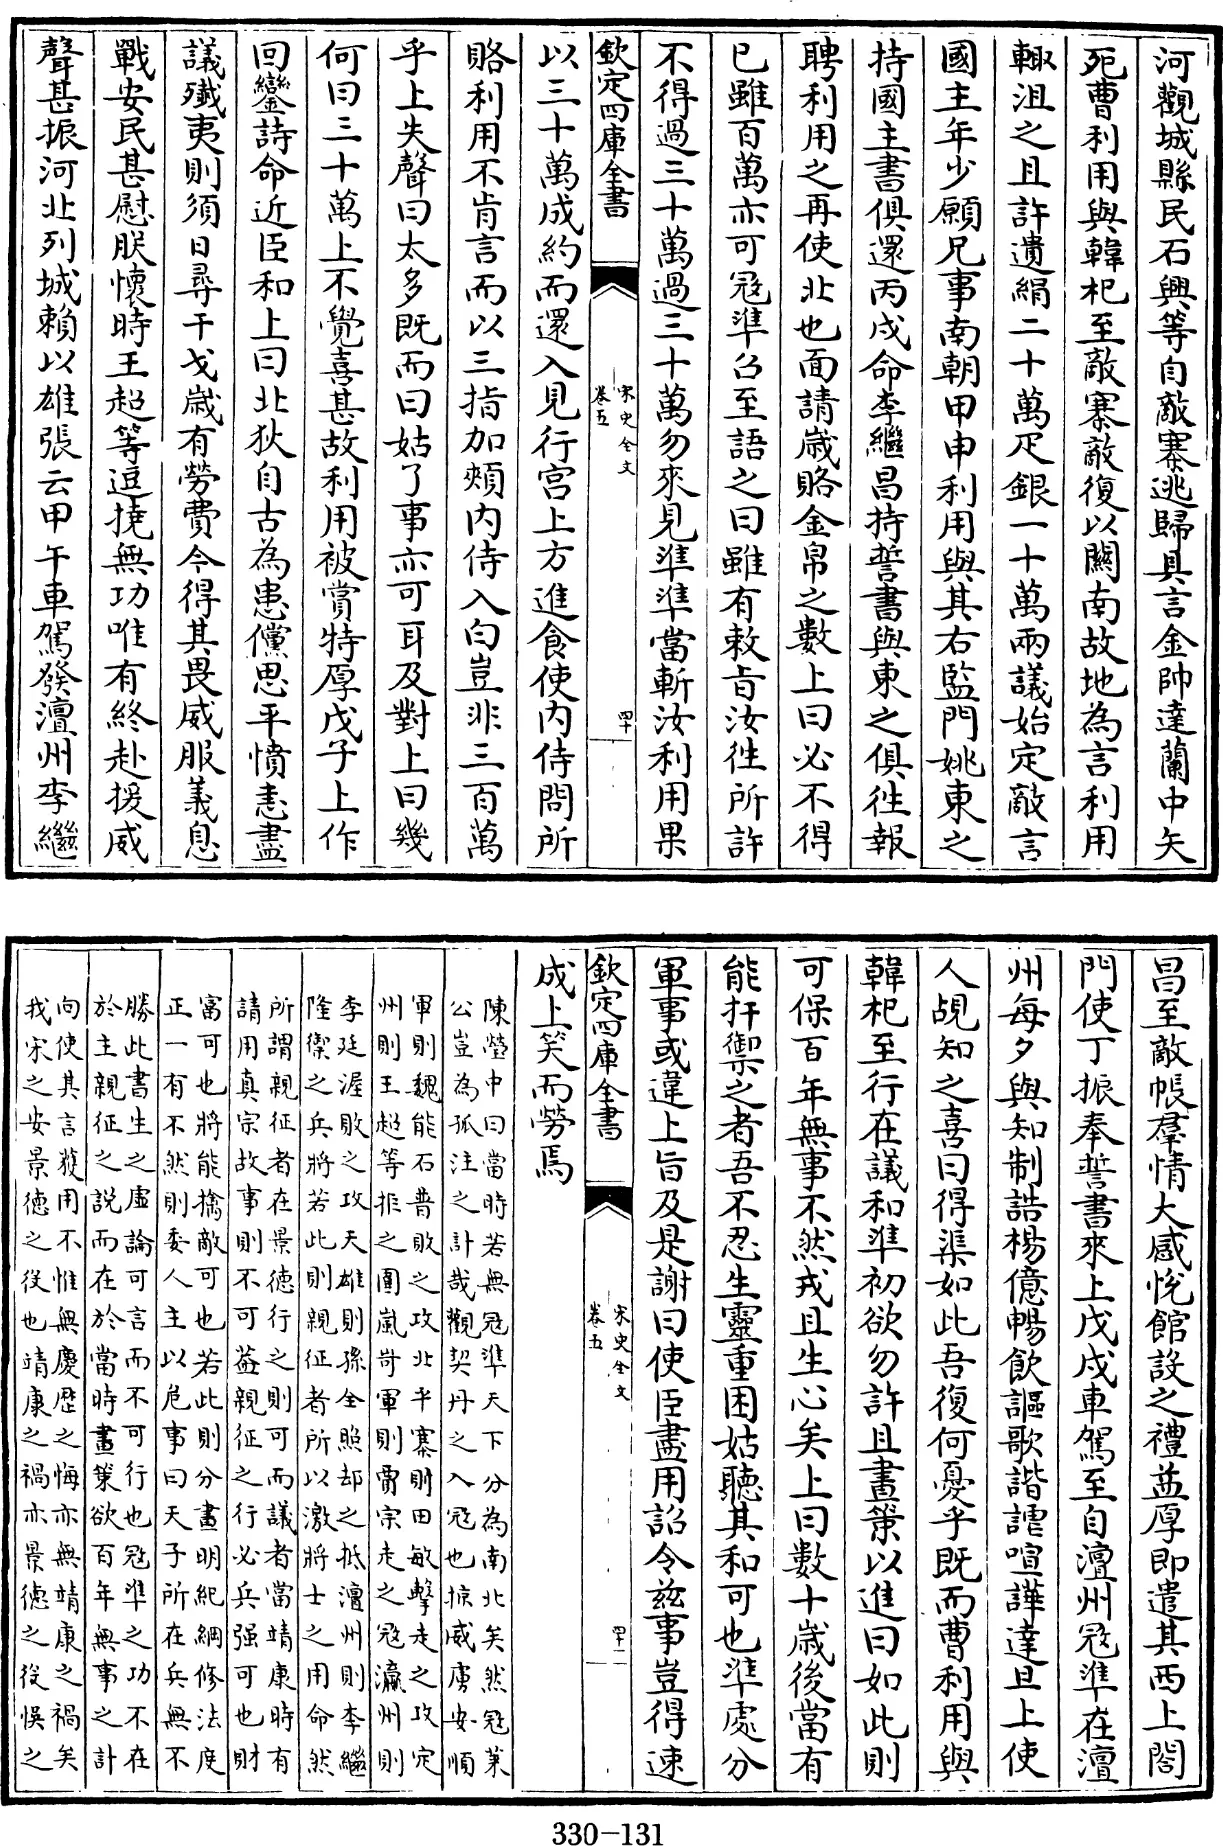 河觀城縣民石興等自敵寨逃歸具言金帥達蘭中矢
死曹利用與韓杞至敵寨敵復以關南故地為言利用
輙沮之且許遺絹二十萬疋銀一十萬兩議始定敵言
國主年少願兄事南朝甲申利用與其右監門姚東之
持國主書俱還丙戌命李繼昌持誓書與東之俱徃報
聘利用之再使北也面請歳賂金帛之數上曰必不得
已雖百萬亦可冦準召至語之曰雖有敕旨汝徃所許
不得過三十萬過三十萬勿來見準準當斬汝利用果
欽定四庫全書
宋史全文
卷五
四十
以三十萬成約而還入見行宫上方進食使内侍問所
賂利用不肯言而以三指加頰内侍入白豈非三百萬
乎上失聲曰太多既而曰姑了事亦可耳及對上曰幾
何曰三十萬上不覺喜甚故利用被賞特厚戊子上作
回鑾詩命近臣和上曰北狄自古為患儻思平憤恚盡
議殱夷則須日尋干戈歳有勞費今得其畏威服義息
戰安民甚慰朕懷時王超等逗撓無功唯有終赴援威
聲甚振河北列城賴以雄張云甲午車駕發澶州李繼
昌至敵帳羣情大感悅館設之禮益厚即遣其西上閤
門使丁振奉誓書來上戊戌車駕至自澶州冦準在澶
州每夕與知制誥楊億暢飲謳歌諧謔喧譁達旦上使
人覘知之喜曰得渠如此吾復何憂乎既而曹利用與
韓杞至行在議和準初欲勿許且畫策以進曰如此則
可保百年無事不然戎且生心矣上曰數十歳後當有
能扞禦之者吾不忍生靈重困姑聽其和可也準處分
軍事或違上旨及是謝曰使臣盡用詔令兹事豈得速
欽定四庫全書
宋史全文
卷五
四十一
成上笑而勞焉
陳瑩中曰當時若無冦準天下分為南北矣然冦萊
公豈為孤注之計哉觀契丹之入冦也掠威虜安順
軍則魏能石普敗之攻北平寨則田敏擊走之攻定
州則王超等拒之圍嵐岢軍則賈宗走之冦瀛州則
李廷渥敗之攻天雄則孫全照却之抵澶州則李繼
隆禦之兵將若此則親征者所以激將士之用命然
所謂親征者在景德行之則可而議者當靖康時有
請用真宗故事則不可葢親征之行必兵强可也財
富可也將能擒敵可也若此則分畫明紀綱修法度
正一有不然則委人主以危事曰天子所在兵無不
勝此書生之虛論可言而不可行也冦準之功不在
於主親征之說而在於當時畫策欲百年無事之計
向使其言獲用不惟無慶歴之悔亦無靖康之禍矣
我宋之安景德之役也靖康之禍亦景德之役悞之
330-131